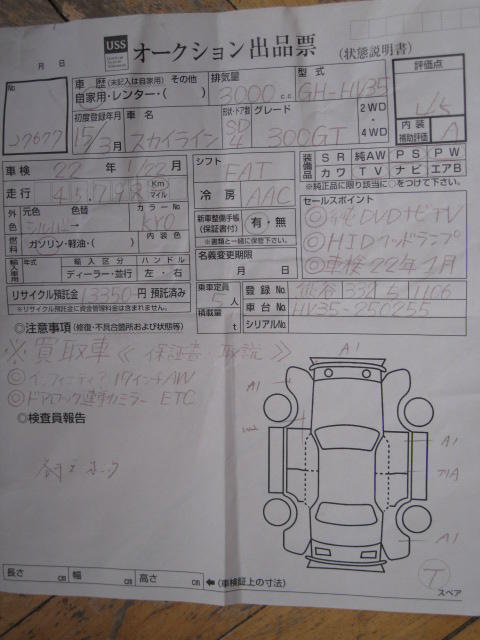 USS オークション出品票 (状態説明書)
月 日
No
27677
車歴 (未記入は自家用) その他
自家用・レンター・( )
排気量
3000 c.c
型式
GH-HV35
評価点
初度登録年月
15/3月
車名
スカイライン
形状・ドア数
SD
4
グレード
300GT
2WD
・
4WD
内装
補助評価
A
車検 22年 1/22月
走行 45,798 Km マイル
シフト
FAT
冷房
AAC
装備品
SR 純AW PS PW
カワ TV ナビ エアB
※純正品に限り該当に○をつけて下さい。
外色
元色 色替
シルバー→
カラーNo
KYO
燃料
ガソリン・軽油・( )
内装色
新車整備手帳
(保証書付)
有・無
※書類と一緒に保管下さい。
セールスポイント
◎純DVDナビTV
◎HIDヘッドランプ
◎車検22年1月
輸入車用
年式 輸入区分 ハンドル
ディーラー・並行 左・右
名義変更期限
月 日
リサイクル預託金 13350円 預託済み
※リサイクル預託金に資金管理料金は含まれません。
乗車定員
5人
積載量
t
登録No. 熊谷 331 ち 1106
車台No. HV35-250255
シリアルNo.
◎注意事項 (修復・不具合箇所および状態等)
※買取車《保証書・取説》
◎インフィニティ? 17インチAW
◎ドアロック連動ミラー ETC
◎検査員報告
A1
A1
A1
A1
T
スペア
長さ cm 幅 cm 高さ cm ←(車検証上の寸法)